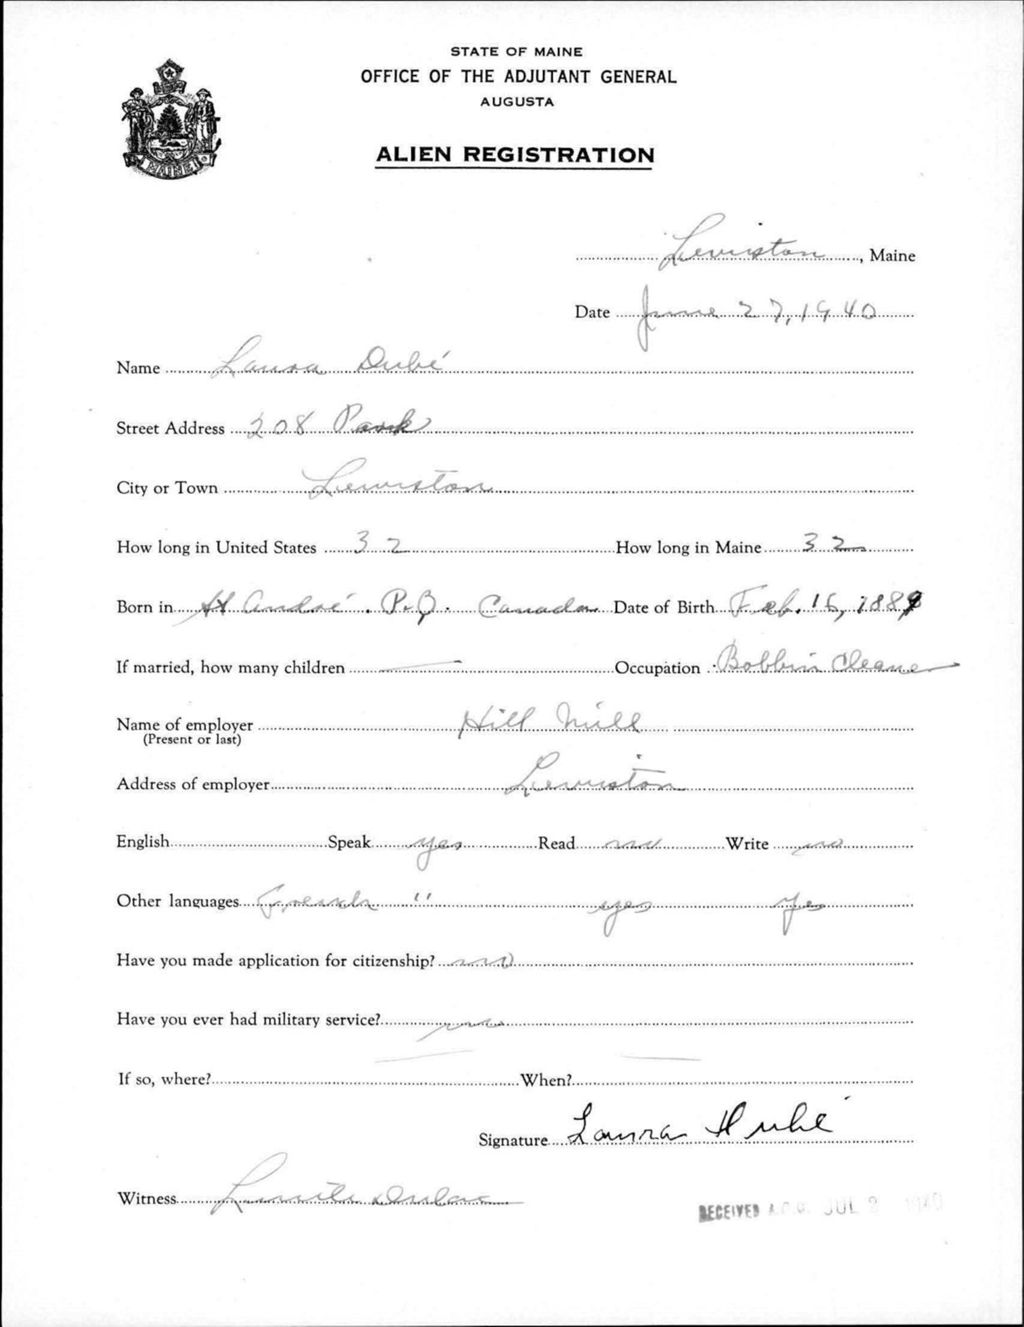 STATE OF MAINE
OFFICE OF THE ADJUTANT GENERAL
AUGUSTA
ALIEN REGISTRATION
MAINE
Lewiston, Maine
Date June 27, 1940
Name Laura Dubé
Street Address 208 Park
City or Town Lewiston
How long in United States 32 How long in Maine 32
Born in St André. P.Q. Canada Date of Birth Feb. 16, 1889
If married, how many children — Occupation Bobbin Cleaner
Name of employer Hill Mill
(Present or last)
Address of employer Lewiston
English Speak yes Read no Write no
Other languages French " yes yes
Have you made application for citizenship? no
Have you ever had military service? no
If so, where? — When? —
Signature Laura Dubé
Witness
RECEIVED A.G.O. JUL 2 1940